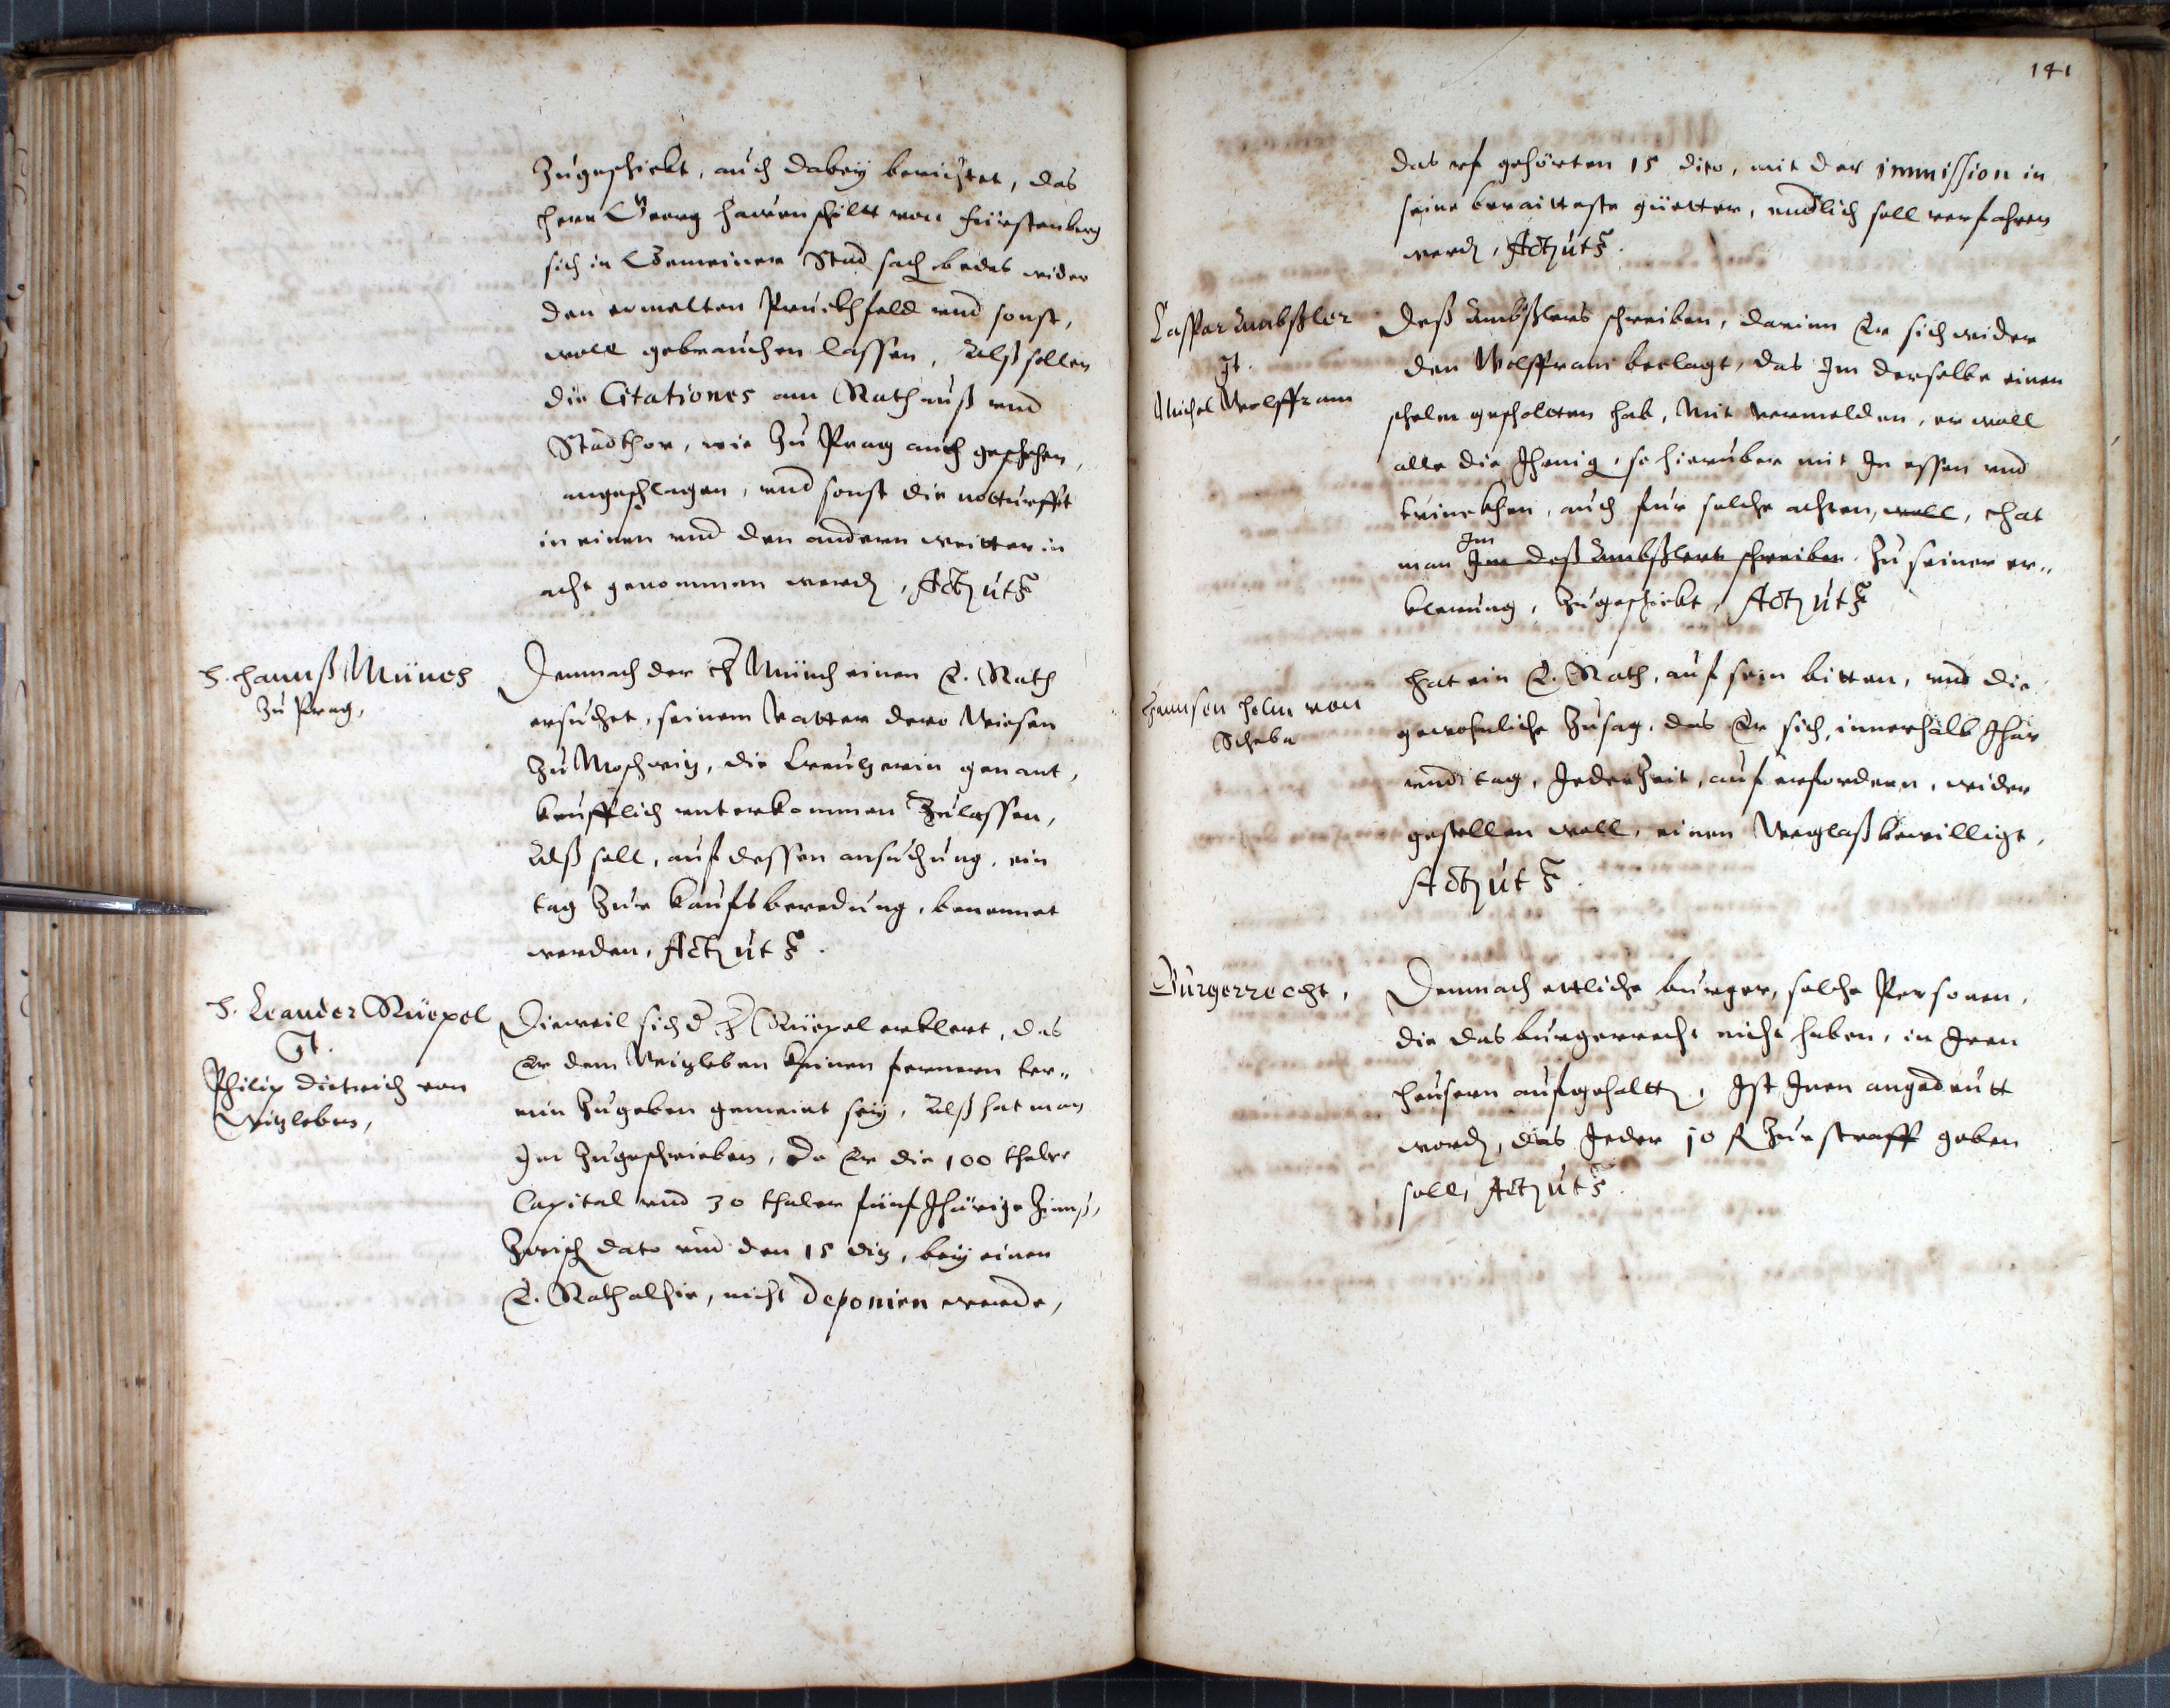 zugeschickt, auch dabey berichtet, das
herr Georg hauenschiltt von Fürstenberg
sich in Gemeiner Stad sach bedes wider
den ermelten Pruckhfeld und sonst,
woll gebrauchen lassen, Alß sollen
die Citationes am Rathauß und
Stadthor, wie zu Prag auch geschehen,
angeschlagen, und sonst die notturfft
in einen und den andern weitter in
acht genommen werdn, Act ut s
H. Hannß Münch
zu Prag,
Demnach der H Münch einen E. Rath
ersuchet, seinem Vatter dero Wiesen
zu Moschwitz, die Creutzerin genant,
keufflich unterkommen zulassen,
Alß soll, auf dessen ansuchung, ein
tag zur kaufsberedung, benennet
werden, Act ut s.
H. Leander Rüepel
Ct.
Philip Dietrich von
Witzleben,
Dieweil sich d H Rüepel erklert, das
Er dem Witzleben keinen fernern ter„
min zugeben gemeint sey, Alß hat man
Im zugeschrieben, Da Er die 100 thaler
Capital und 30 thaler fünf Jhärige Zinnß,
Zwisch dato und den 15 diz, bey einen
E. Rath alhie, nicht deponirn werde,
141
das uf gehörten 15 dito, mit der immission in
seine beraitteste güetter, endlich soll verfahren
werdn, Act ut s.
Caspar Ambßler
Ct.
Michel Wolffram
Deß Ambßlers schreiben, darinn Er sich wider
den Wolffram beclagt, das Im derselbe einen
schelm gescholtten hab, Mit vermelden, er woll
alle die Jhenig, so hieruber mit Im essen und
trinckhen, auch fur solche achten, woll, hat
Im
man Im deß Ambßlers schreiben zu seiner er„
klerung, zugeschickt, Act ut s
Hannsen Helm von
Scheba
Hat ein E. Rath, auf sein bitten, und die
gewohnliche Zusag, das Er sich, innerhalb Jhar
und tag, Jederzeit, auf erfordern, wider
gestellen woll, einen Weglaß bewilligt,
Act ut s.
Burgerrecht,
Demnach ettliche burger, solche Personen,
die das burgerrecht nicht haben, in Iren
heusern aufgehalttn, Ist Inen angedeutt
wordn, das Jeder 10 R zur straff geben
soll, Act ut s.